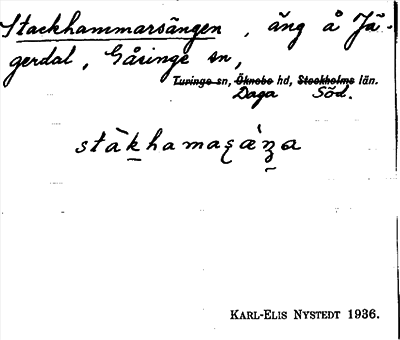 Stackhammarsängen, äng å Jä-
gerdal, Gåsinge sn,
Turinge sn, Öknebo hd, Stockholms län.
Daga Söd.
stàkhamaʂæ̀ŋa
KARL-ELIS NYSTEDT 1936.